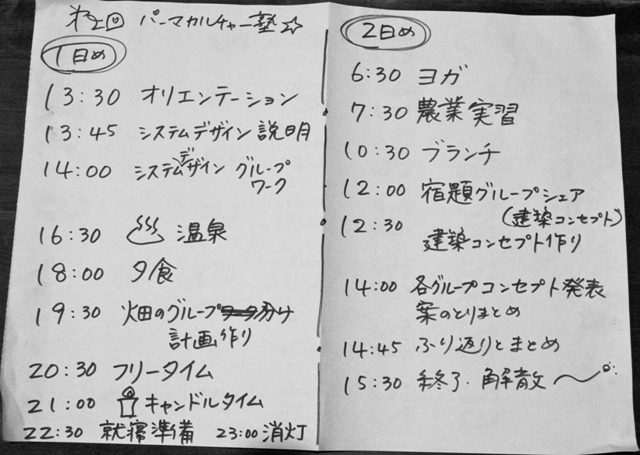 第2回 パーマカルチャー塾☆
1日め
13:30 オリエンテーション
13:45 システムデザイン説明
14:00 システムデザイン グループ
ワーク
16:30 ♨ 温泉
18:00 夕食
19:30 畑のグループ分け
計画作り
20:30 フリータイム
21:00 キャンドルタイム
22:30 就寝準備 23:00 消灯
2日め
6:30 ヨガ
7:30 農業実習
10:30 ブランチ
12:00 宿題グループシェア
(建築コンセプト)
12:30
建築コンセプト作り
14:00 各グループコンセプト発表
案のとりまとめ
14:45 ふり返りとまとめ
15:30 終了・解散